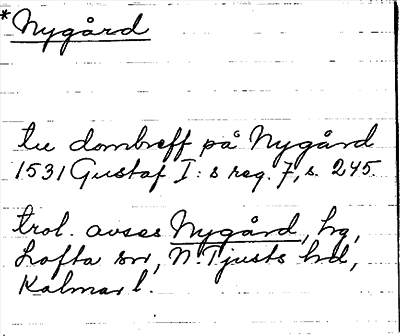 *Nygård
tu dombreff på Nygård
1531 Gustaf I:s reg. 7, s. 245.
trol. avses Nygård, hg,
Lofta sn, N. Tjusts hd,
Kalmar l.